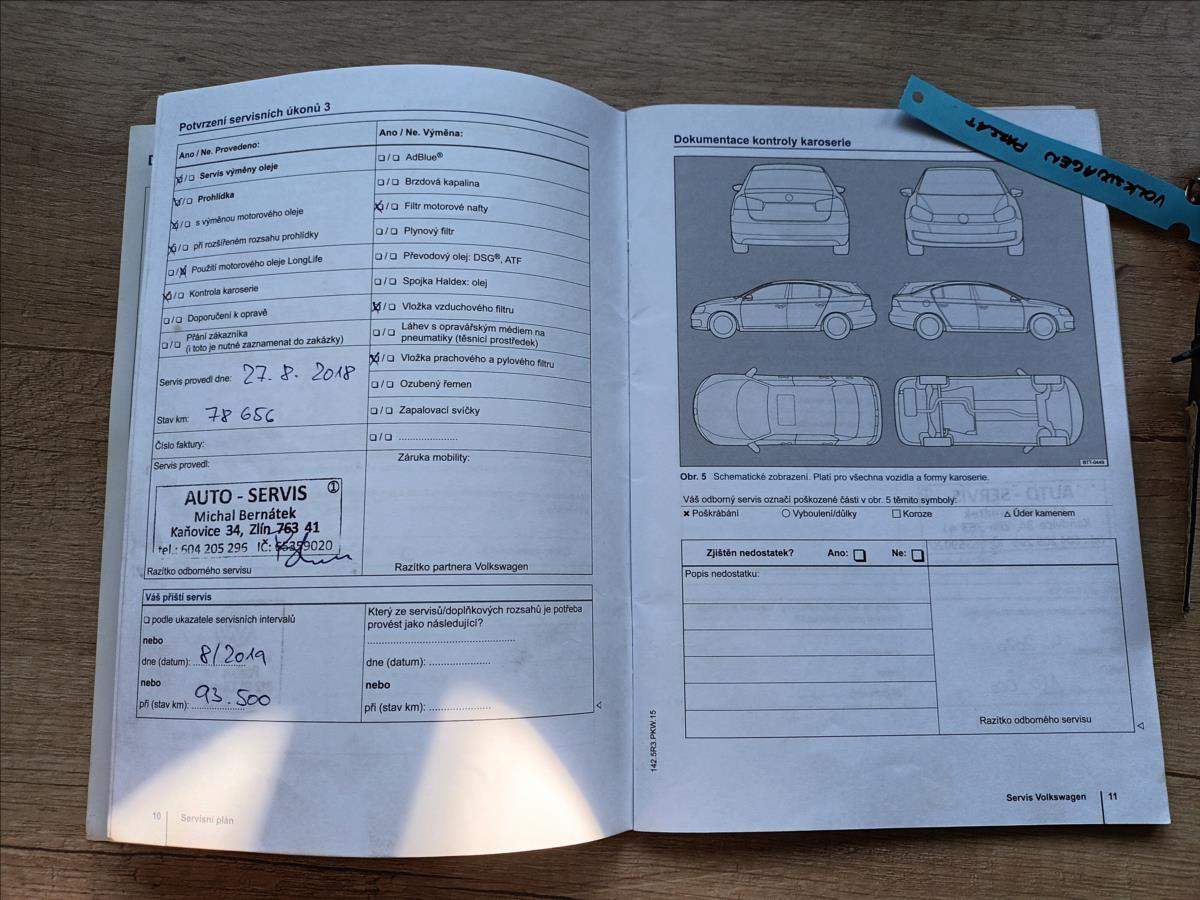 Potvrzení servisních úkonů 3
Ano / Ne. Provedeno:
☒ / ❏ Servis výměny oleje
☒ / ❏ Prohlídka
☒ / ❏ s výměnou motorového oleje
☒ / ❏ při rozšířeném rozsahu prohlídky
❏ / ☒ Použití motorového oleje LongLife
☒ / ❏ Kontrola karoserie
❏ / ❏ Doporučení k opravě
❏ / ❏ Přání zákazníka
(i toto je nutné zaznamenat do zakázky)
Servis provedl dne: 27. 8. 2018
Stav km: 78 656
Číslo faktury:
Servis provedl:
AUTO - SERVIS ①
Michal Bernátek
Kaňovice 34, Zlín 763 41
tel.: 604 205 296 IČ:
Razítko odborného servisu
Ano / Ne. Výměna:
❏ / ❏ AdBlue®
❏ / ❏ Brzdová kapalina
☒ / ❏ Filtr motorové nafty
❏ / ❏ Plynový filtr
❏ / ❏ Převodový olej: DSG®, ATF
❏ / ❏ Spojka Haldex: olej
☒ / ❏ Vložka vzduchového filtru
❏ / ❏ Láhev s opravářským médiem na
pneumatiky (těsnicí prostředek)
☒ / ❏ Vložka prachového a pylového filtru
❏ / ❏ Ozubený řemen
❏ / ❏ Zapalovací svíčky
❏ / ❏ ....................
Záruka mobility:
Razítko partnera Volkswagen
Váš příští servis
❏ podle ukazatele servisních intervalů
nebo
dne (datum): 8/2019
nebo
při (stav km): 93.500
Který ze servisů/doplňkových rozsahů je potřeba
provést jako následující?
dne (datum): ....................
nebo
při (stav km): ....................
10 Servisní plán
Dokumentace kontroly karoserie
B7T-0449
Obr. 5 Schematické zobrazení. Platí pro všechna vozidla a formy karoserie.
Váš odborný servis označí poškozené části v obr. 5 těmito symboly:
✖ Poškrábání ○ Vyboulení/důlky □ Koroze △ Úder kamenem
Zjištěn nedostatek? Ano: ❏ Ne: ❏
Popis nedostatku:
Razítko odborného servisu
142.5R3.PKW.15
Servis Volkswagen 11
VOLKSWAGEN PASSAT